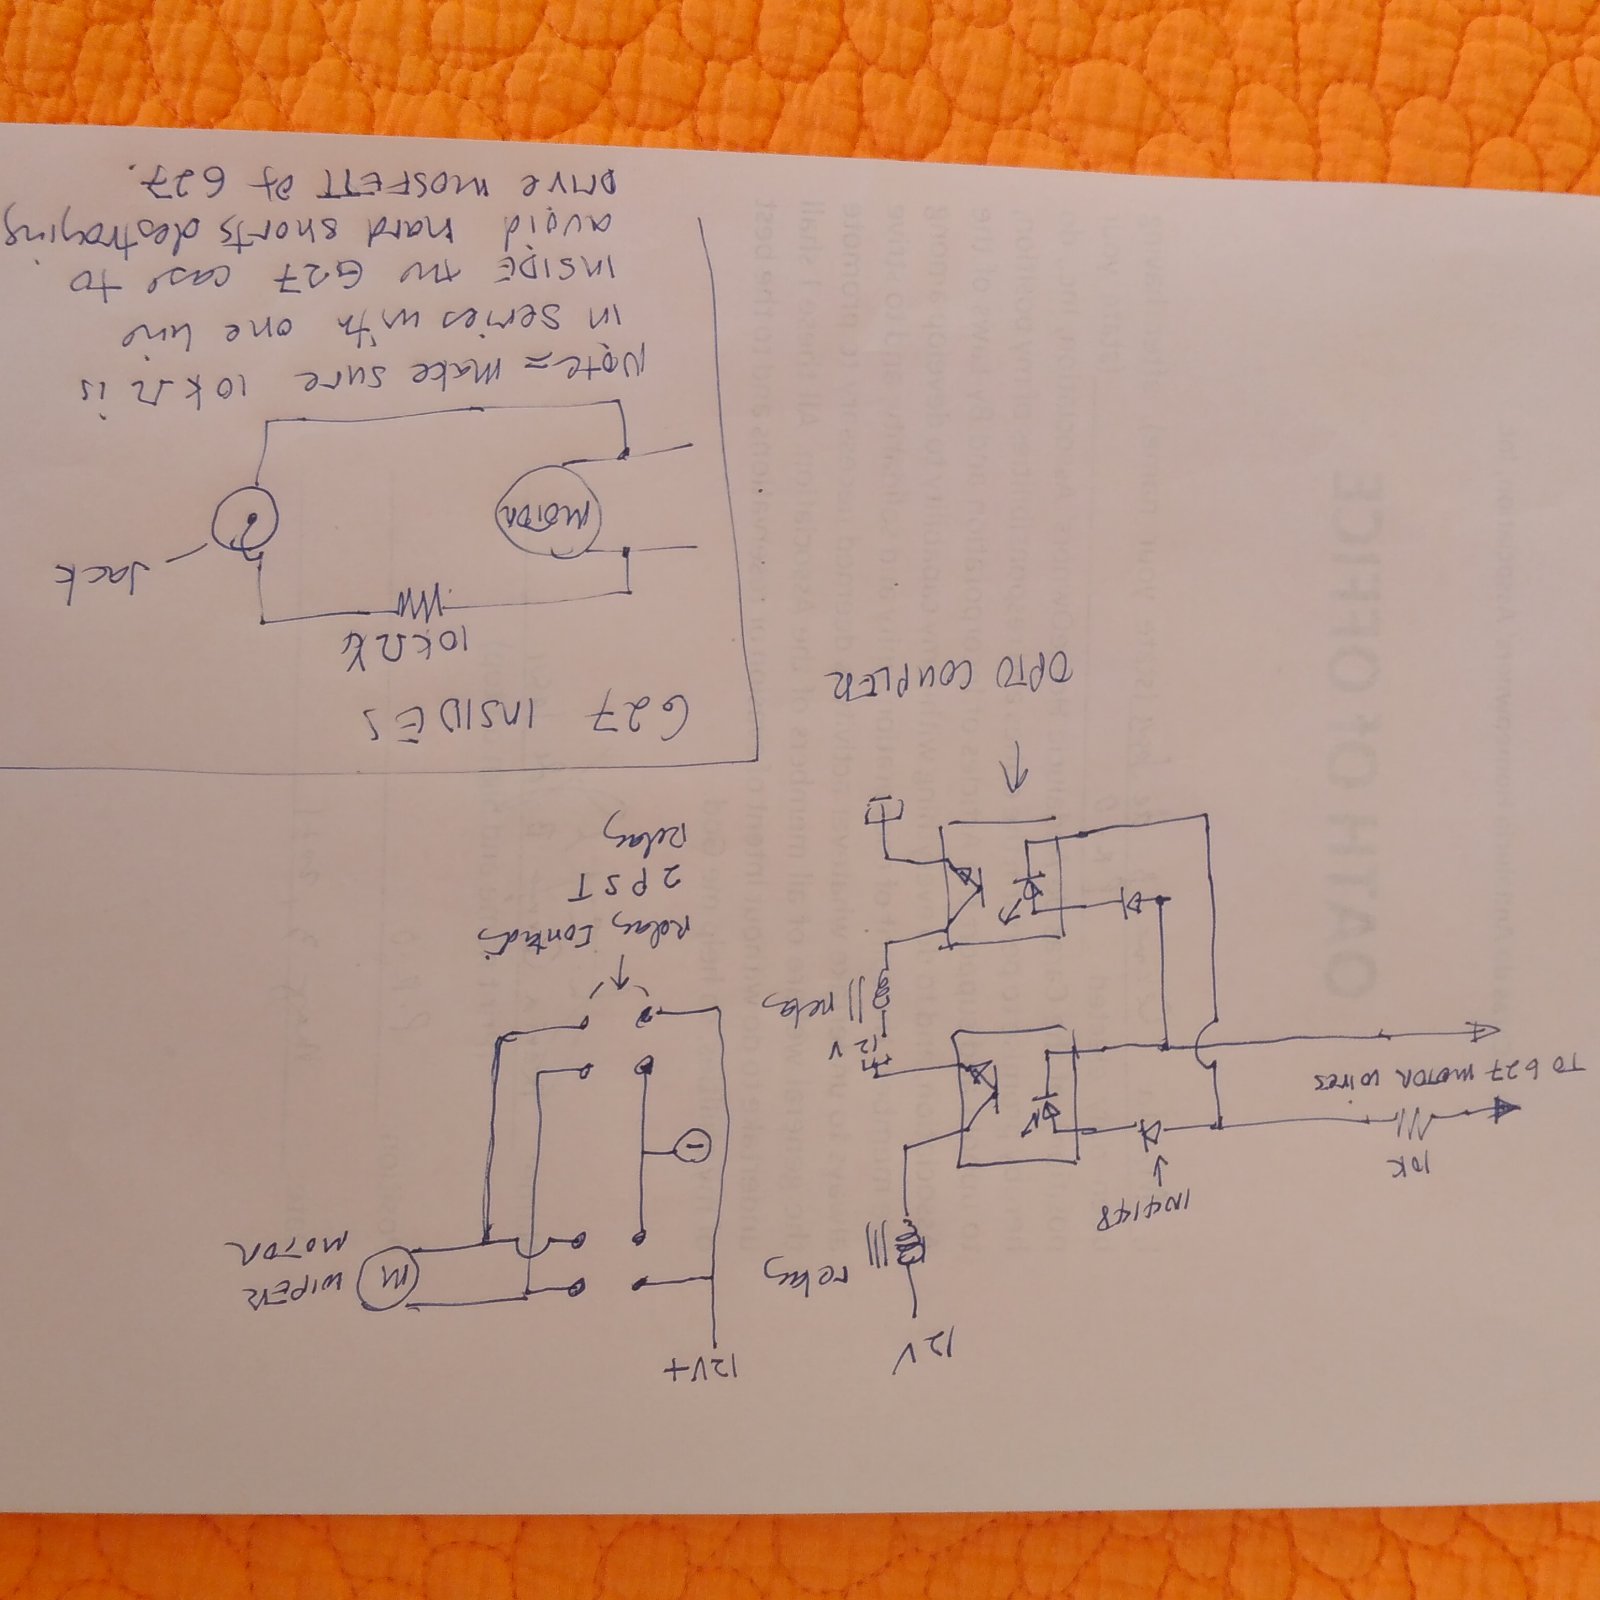 12V
12V+
relay
WIPER
MOTOR
M
1N4148
10K
TO G27 MOTOR WIRES
12V
relay
Relay Control
2PST
Relay
OPTO COUPLER
G27 INSIDES
10KΩ
Jack
MOTOR
Note = make sure 10KΩ is
in series with one line
INSIDE the G27 case to
avoid hard shorts destroying
DRIVE MOSFETT of G27.
OATH OF OFFICE